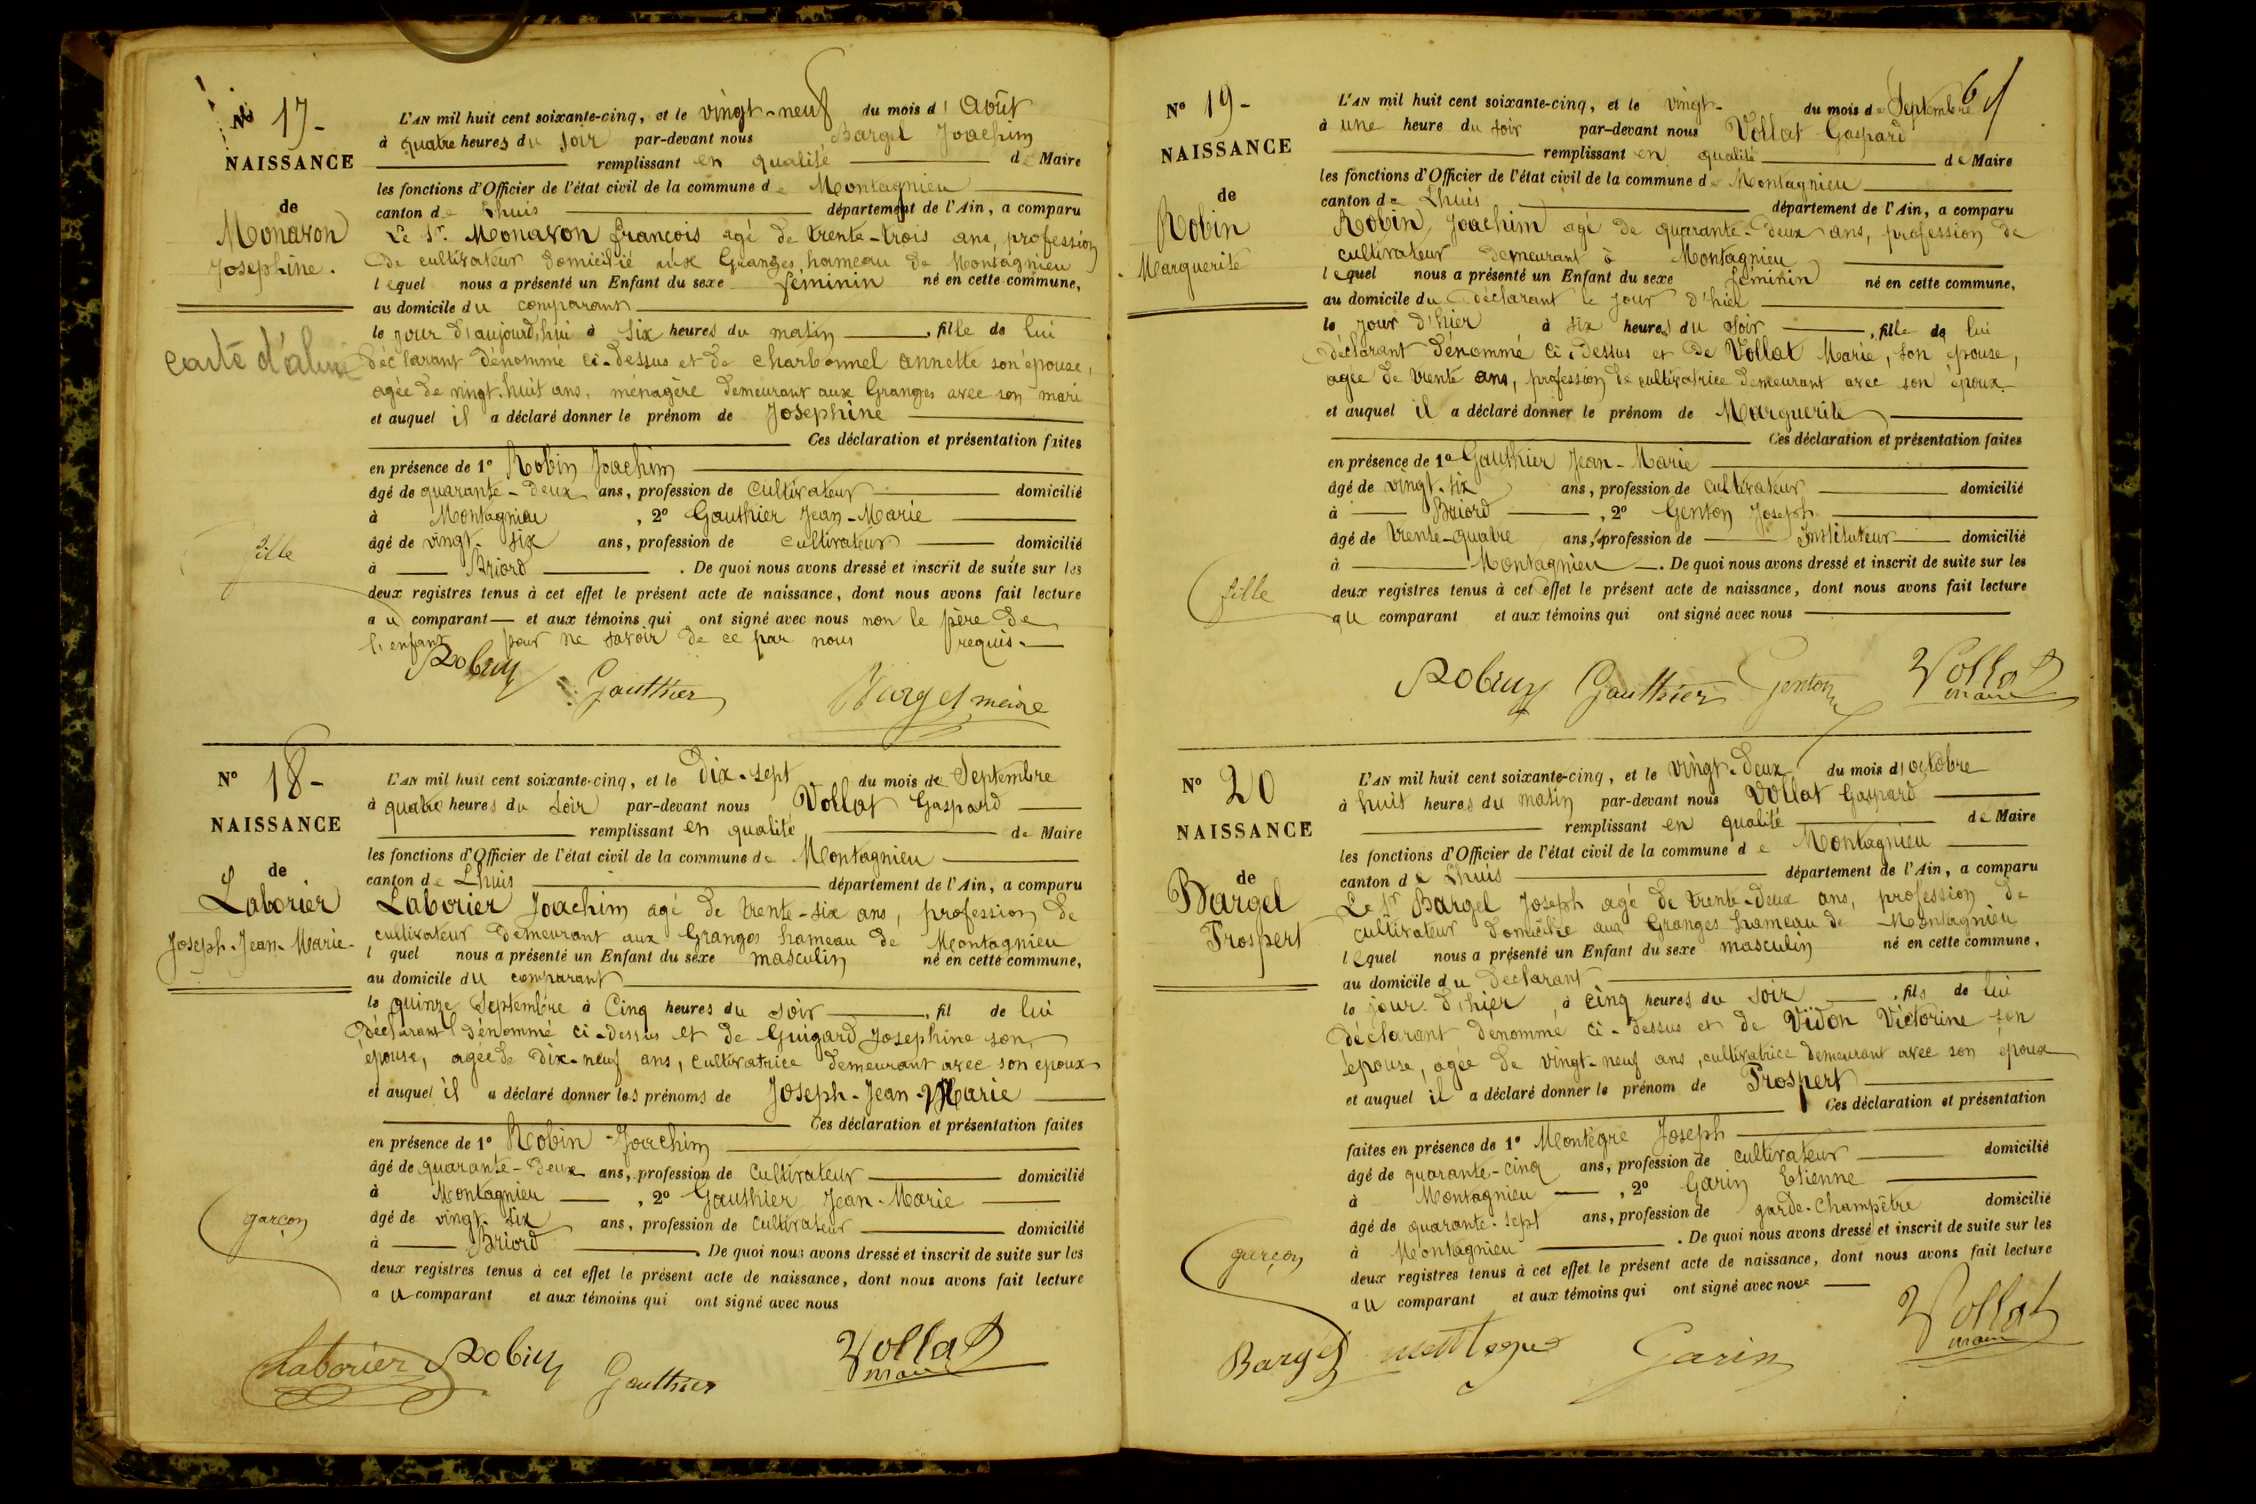 N° 17-
NAISSANCE
de
Monavon
Josephine.
carte d'alim
fille
L'AN mil huit cent soixante-cinq, et le vingt-neuf du mois d'Août
à quatre heures du soir par-devant nous Bargel Joachim
remplissant en qualité de Maire
les fonctions d'Officier de l'état civil de la commune de Montagnieu
canton de Lhuis département de l'Ain, a comparu
Le Sr. Monavon françois agé de trente-trois ans, profession
de cultivateur domicilié aux Granges, hameau de Montagnieu
lequel nous a présenté un Enfant du sexe féminin né en cette commune,
au domicile du comparant
le jour d'aujourd'hui à six heures du matin, fille de lui
déclarant dénommé ci-dessus et de Charbonnel annette son épouse,
agée de vingt-huit ans, ménagère demeurant aux Granges avec son mari
et auquel il a déclaré donner le prénom de Josephine
Ces déclaration et présentation faites
en présence de 1° Robin Joachim
âgé de quarante-deux ans, profession de cultivateur domicilié
à Montagnieu, 2° Gauthier Jean-Marie
âgé de vingt-six ans, profession de cultivateur domicilié
à Briord. De quoi nous avons dressé et inscrit de suite sur les
deux registres tenus à cet effet le présent acte de naissance, dont nous avons fait lecture
au comparant et aux témoins qui ont signé avec nous non le père de
l'enfant pour ne savoir de ce par nous requis.
Robin Gauthier Bargel maire
N° 18-
NAISSANCE
de
Laborier
Joseph-Jean-Marie-
garçon
L'AN mil huit cent soixante-cinq, et le Dix-sept du mois de Septembre
à quatre heures du soir par-devant nous Vollat Gaspard
remplissant en qualité de Maire
les fonctions d'Officier de l'état civil de la commune de Montagnieu
canton de Lhuis département de l'Ain, a comparu
Laborier Joachim agé de trente-six ans, profession de
cultivateur demeurant aux Granges hameau de Montagnieu
l quel nous a présenté un Enfant du sexe masculin né en cette commune,
au domicile du comparant
le quinze Septembre à Cinq heures du soir, fil de lui
déclarant dénommé ci-dessus et de Guigard Josephine son
épouse, agée de dix-neuf ans, cultivatrice demeurant avec son époux
et auquel il a déclaré donner les prénoms de Joseph-Jean-Marie
Ces déclaration et présentation faites
en présence de 1° Robin Joachim
âgé de quarante-deux ans, profession de cultivateur domicilié
à Montagnieu, 2° Gauthier Jean-Marie
âgé de vingt-six ans, profession de cultivateur domicilié
à Briord. De quoi nous avons dressé et inscrit de suite sur les
deux registres tenus à cet effet le présent acte de naissance, dont nous avons fait lecture
au comparant et aux témoins qui ont signé avec nous
Laborier Robin Gauthier Vollat
maire
N° 19-
NAISSANCE
de
Robin
Marguerite
fille
L'AN mil huit cent soixante-cinq, et le vingt- du mois de Septembre
à une heure du soir par-devant nous Vollat Gaspard
remplissant en qualité de Maire
les fonctions d'Officier de l'état civil de la commune de Montagnieu
canton de Lhuis département de l'Ain, a comparu
Robin Joachim agé de quarante-deux ans, profession de
cultivateur demeurant à Montagnieu
lequel nous a présenté un Enfant du sexe féminin né en cette commune,
au domicile du déclarant le jour d'hier
le jour d'hier à six heures du soir, fille de lui
déclarant dénommé ci-dessus et de Vollat Marie, son épouse,
agée de trente ans, profession de cultivatrice demeurant avec son époux
et auquel il a déclaré donner le prénom de Marguerite
Ces déclaration et présentation faites
en présence de 1° Gauthier Jean-Marie
âgé de vingt-six ans, profession de cultivateur domicilié
à Briord, 2° Genton Joseph
âgé de trente-quatre ans, profession de Instituteur domicilié
à Montagnieu. De quoi nous avons dressé et inscrit de suite sur les
deux registres tenus à cet effet le présent acte de naissance, dont nous avons fait lecture
au comparant et aux témoins qui ont signé avec nous
Robin Gauthier Genton Vollat
maire
N° 20
NAISSANCE
de
Bargel
Prospert
garçon
L'AN mil huit cent soixante-cinq, et le vingt-deux du mois d'octobre
à huit heures du matin par-devant nous Vollat Gaspard
remplissant en qualité de Maire
les fonctions d'Officier de l'état civil de la commune de Montagnieu
canton de Lhuis département de l'Ain, a comparu
Le Sr Bargel Joseph agé de trente-deux ans, profession de
cultivateur domicilié aux Granges hameau de Montagnieu
lequel nous a présenté un Enfant du sexe masculin né en cette commune,
au domicile du déclarant
le jour d'hier à cinq heures du soir, fils de lui
déclarant dénommé ci-dessus et de Vidon Victorine son
épouse, agée de vingt-neuf ans, cultivatrice demeurant avec son époux
et auquel il a déclaré donner le prénom de Prospert
Ces déclaration et présentation
faites en présence de 1° Montègre Joseph
âgé de quarante-cinq ans, profession de cultivateur domicilié
à Montagnieu, 2° Garin Etienne
âgé de quarante-sept ans, profession de garde-Champêtre domicilié
à Montagnieu. De quoi nous avons dressé et inscrit de suite sur les
deux registres tenus à cet effet le présent acte de naissance, dont nous avons fait lecture
au comparant et aux témoins qui ont signé avec nous
Bargel Garin Vollat
maire